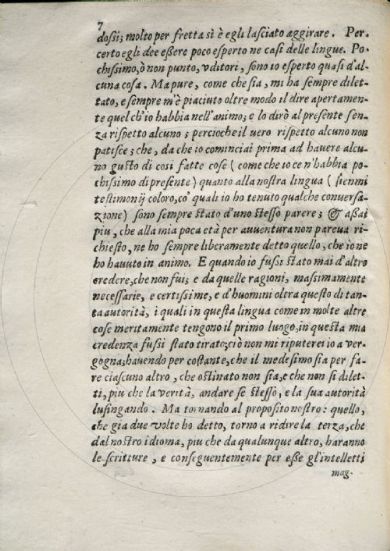 7
dossi; molto per fretta si è egli lasciato aggirare. Per
certo egli dee essere poco esperto ne casi delle lingue. Po
chissimo, ò non punto, vditori, sono io esperto quasi d'al
cuna cosa. Ma pure, come che sia, mi ha sempre dilet
tato, e sempre m'è piaciuto oltre modo il dire apertamen
te quel ch'io habbia nell'animo; e lo dirò al presente sen
za rispetto alcuno; percioche il uero rispetto alcuno non
patisce; che, da che io cominciai prima ad hauere alcu
no gusto di cosi fatte cose (come che io ce n'habbia po
chissimo di presente) quanto alla nostra lingua (sienmi
testimonij coloro, co' quali io ho tenuto qualche conuersa
zione) sono sempre stato d'uno stesso parere; & assai
piu, che alla mia poca età per auuentura non pareua ri
chiesto, ne ho sempre liberamente detto quello, che io ne
ho hauuto in animo. E quando io fussi stato mai d'altro
credere, che non fui; e da quelle ragioni, massimamente
necessarie, e certissime, e d'huomini oltra questo di tan
ta autorità, i quali in questa lingua come in molte altre
cose meritamente tengono il primo luogo, in questa mia
credenza fussi stato tirato; ciò non mi riputerei io a ver
gogna; hauendo per costante, che il medesimo sia per fa
re ciascuno altro, che ostinato non sia, e che non si dilet
ti, piu che la verità, andare se stesso, e la sua autorità
lusingando. Ma tornando al proposito nostro: quello,
che gia due volte ho detto, torno a ridire la terza, che
dal nostro idioma, piu che da qualunque altro, haranno
le scritture, e conseguentemente per esse gl'intelletti
mag-